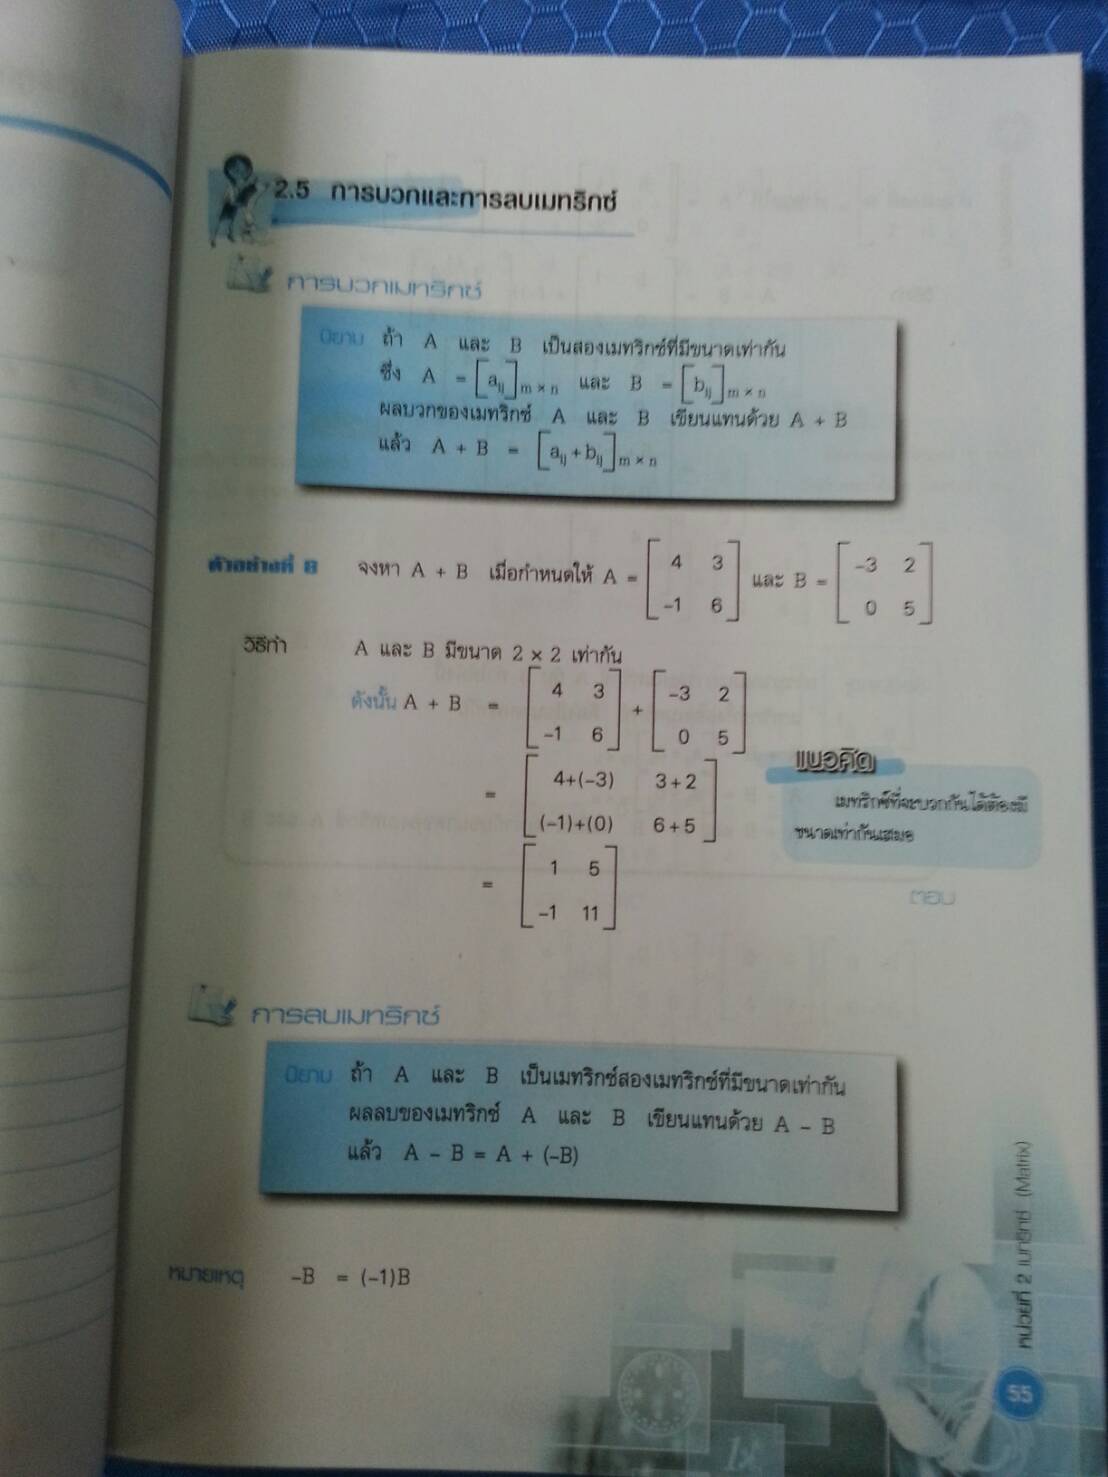 2.5 การบวกและการลบเมทริกซ์
การบวกเมทริกซ์
นิยาม ถ้า A และ B เป็นสองเมทริกซ์ที่มีขนาดเท่ากัน
ซึ่ง A = [aij]m × n และ B = [bij]m × n
ผลบวกของเมทริกซ์ A และ B เขียนแทนด้วย A + B
แล้ว A + B = [aij + bij]m × n
ตัวอย่างที่ 8 จงหา A + B เมื่อกำหนดให้ A = [4 3; -1 6] และ B = [-3 2; 0 5]
วิธีทำ A และ B มีขนาด 2 × 2 เท่ากัน
ดังนั้น A + B = [4 3; -1 6] + [-3 2; 0 5]
= [4+(-3) 3+2; (-1)+(0) 6+5]
แนวคิด
เมทริกซ์ที่จะบวกกันได้ต้องมี
ขนาดเท่ากันเสมอ
= [1 5; -1 11]
ตอบ
การลบเมทริกซ์
นิยาม ถ้า A และ B เป็นเมทริกซ์สองเมทริกซ์ที่มีขนาดเท่ากัน
ผลลบของเมทริกซ์ A และ B เขียนแทนด้วย A - B
แล้ว A - B = A + (-B)
หมายเหตุ -B = (-1)B
หน่วยที่ 2 เมทริกซ์ (Matrix)
55